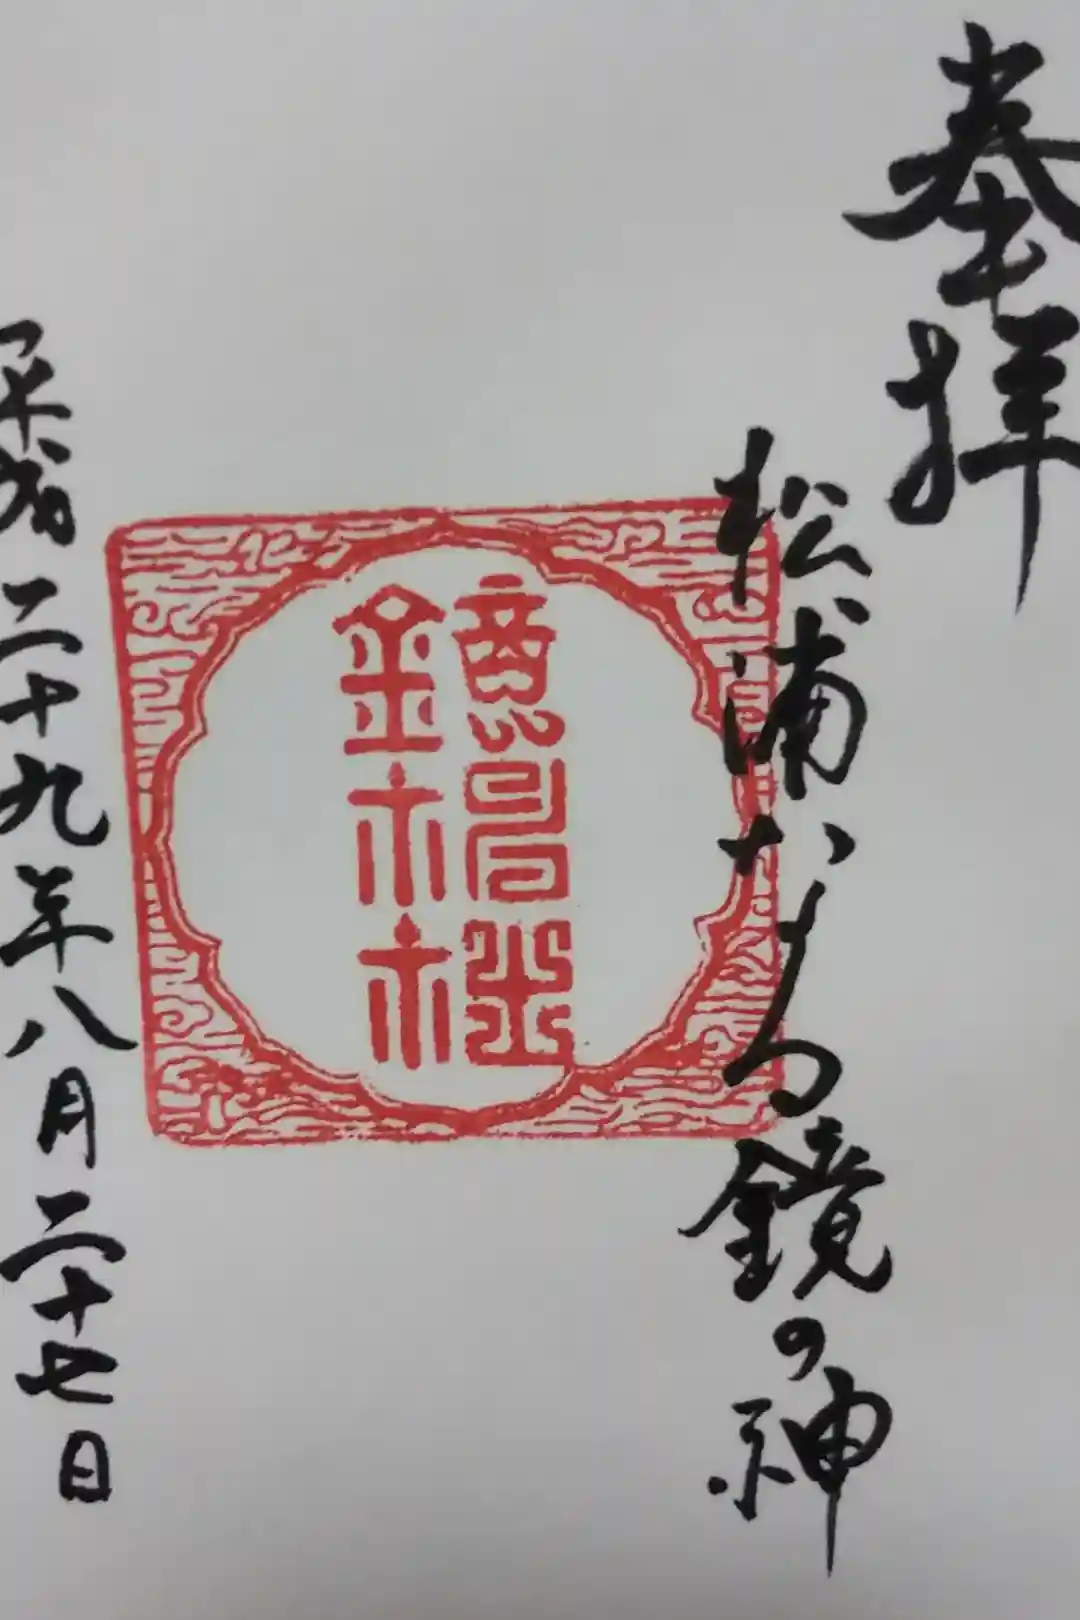 奉拝
松浦なる鏡の神
鏡神社
平成二十九年八月二十七日